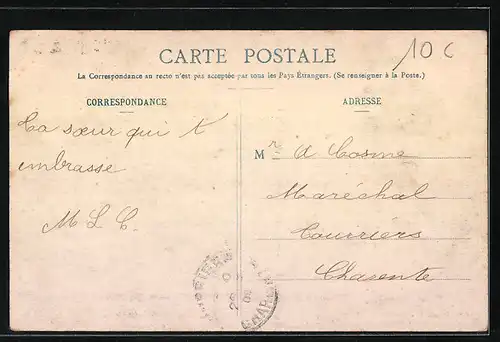 CARTE POSTALE
10 c
La Correspondance au recto n'est pas acceptée par tous les Pays Étrangers. (Se renseigner à la Poste.)
CORRESPONDANCE
La sœur qui t
embrasse
M L C.
ADRESSE
Mr A Cosme
Maréchal
Couriérs
Charente